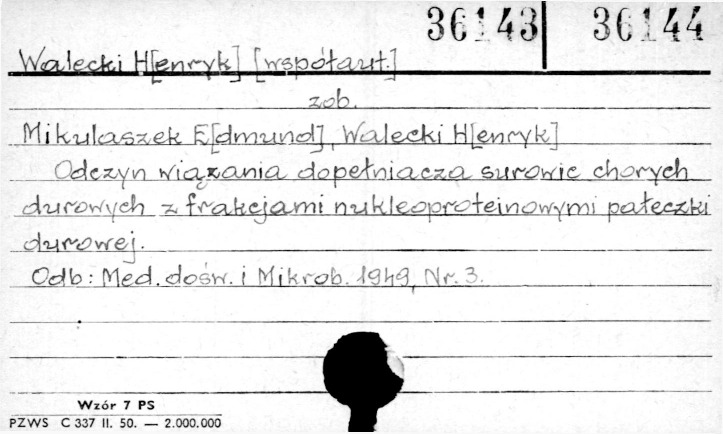 36143 36144
Walecki H[enryk] [współaut.]
zob.
Mikulaszek E[dmund], Walecki H[enryk]
Odczyn wiązania dopełniacza surowic chorych
durowych z frakcjami nukleoproteinowymi pałeczki
durowej.
Odb: Med. dośw. i Mikrob. 1949, Nr. 3.
Wzór 7 PS
PZWS C 337 II. 50. — 2.000.000